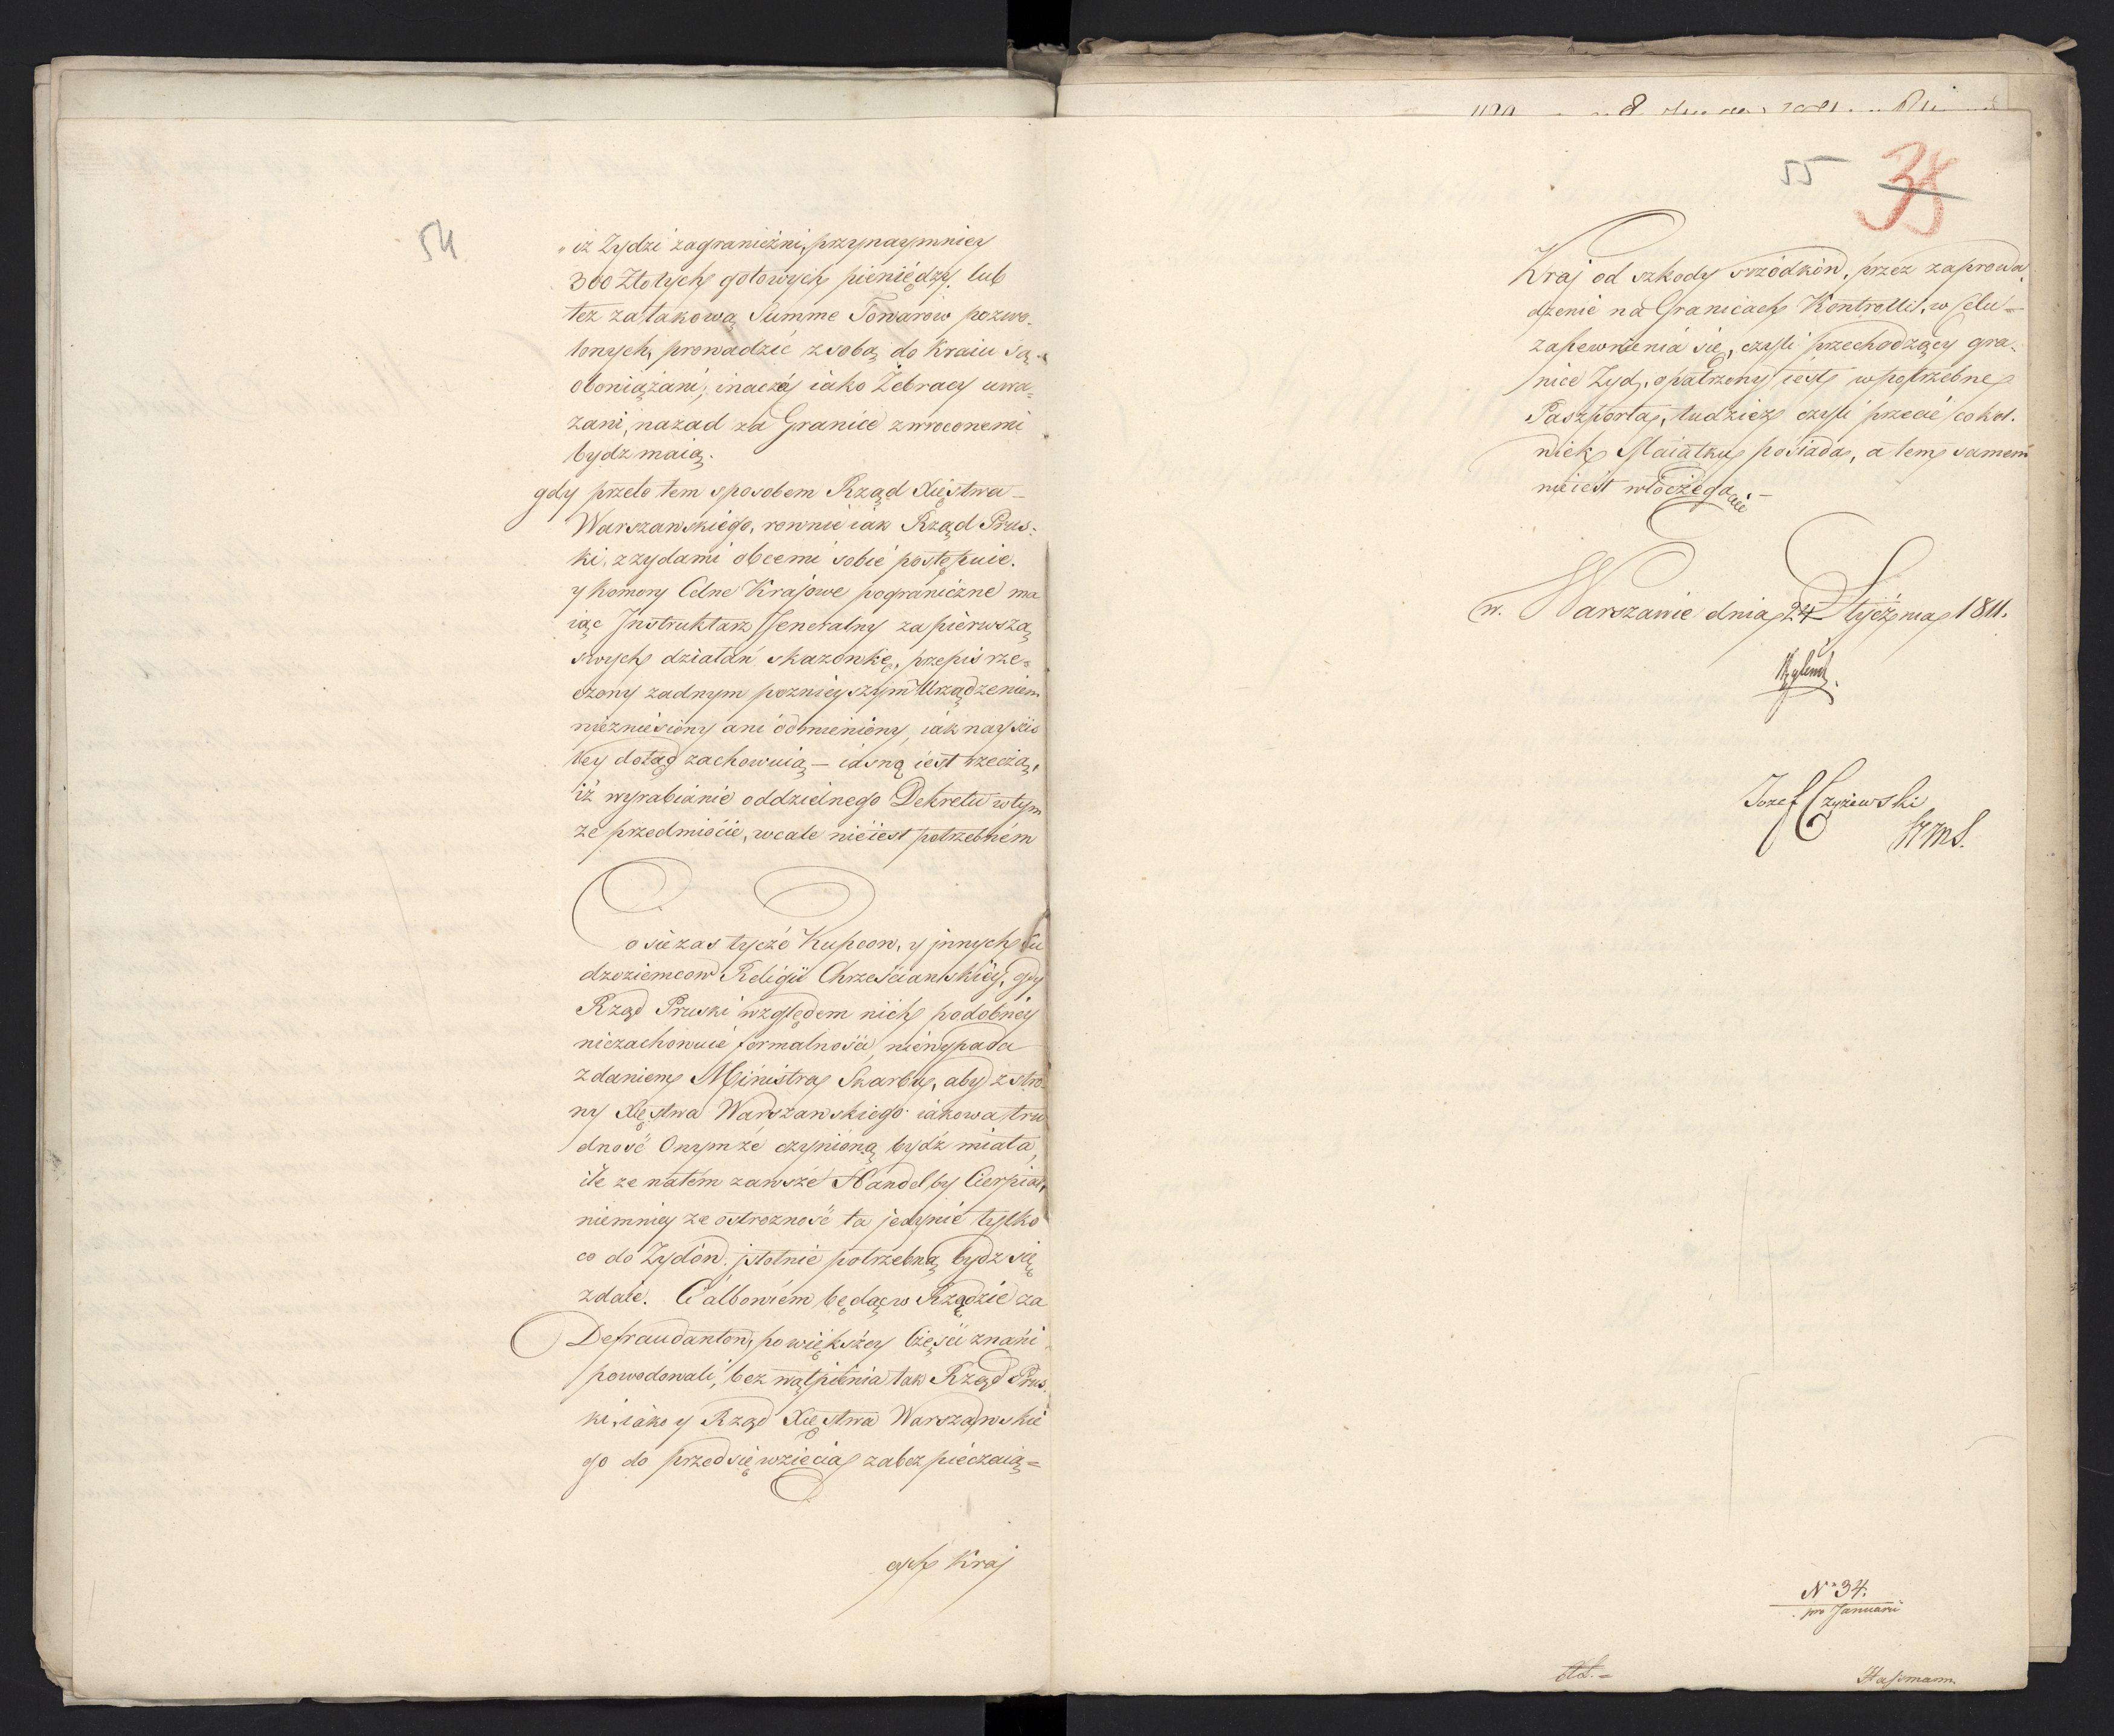 54
iż Żydzi zagraniczni, przynaymniey
300 Złotych gotowych pieniędzy, lub
też za takową Summe Towarów pozwo-
lonych, prowadzić z sobą do Kraiu są
obowiązani, inaczéj iako Żebracy uwa-
żani, nazad za Granicę zwroconemi
bydz maią.
gdy przeto tem sposobem Rząd Xięstwa
Warszawskiego, rownie iak Rząd Prus-
ki, z żydami obcemi sobie postępuie.
y Komory Celne Krajowe pograniczne ma
iąc Instruktarz Jeneralny za pierwszą
swych działań skazowkę, przepis rze-
czony żadnym poznieyszym Urządzeniem
niezniesiony ani odmieniony, iak nayści
śley dotąd zachowuią – iasną iest rzeczą,
iż wyrabianie oddzielnego Dekretu w tym
że przedmiocie, wcale nieiest potrzebném
Co się zaś tycze Kupcow, y innych Cu
dzoziemcow Religii Chrześciańskiéy, gdy
Rząd Pruski względem nich podobnéy
niezachowuie formalności, niewypada
zdaniem Ministra Skarbu, aby z stro-
ny Xięstwa Warszawskiego iakowa tru
dność Onymże czynioną bydź miała,
ile że natém zawsze Handel by Cierpiał,
niemniey że ostrożność ta jedynie tylko
co do Żydów. istotnie potrzebną bydz się
zdaie. Ci albowiém będąc w Rządzie za
Defraudantow, po większey Części znani
powodowali, bez wątpienia tak Rząd Prus
ki, iako y Rząd Xięstwa Warszawskie
go do przedsięwzięcia zabezpieczaią=
cych Kraj
55 35
Kraj od szkody srzodków, przez zaprowa
dzenie na Granicach Kontrolli, w Celu
zapewnienia się, czyli przechodzący gra-
nice Zyd, opatrzony iest w potrzebne
Paszporta, tudzież czyli przecie cokol.
wiek Maiątku posiada, a tem samem
nieiest włóczęgą
w. Warszawie dnia 24 Stycznia 1811.
Jozef Czyżewski
N° 34.
pro Januarii
Hassmann.